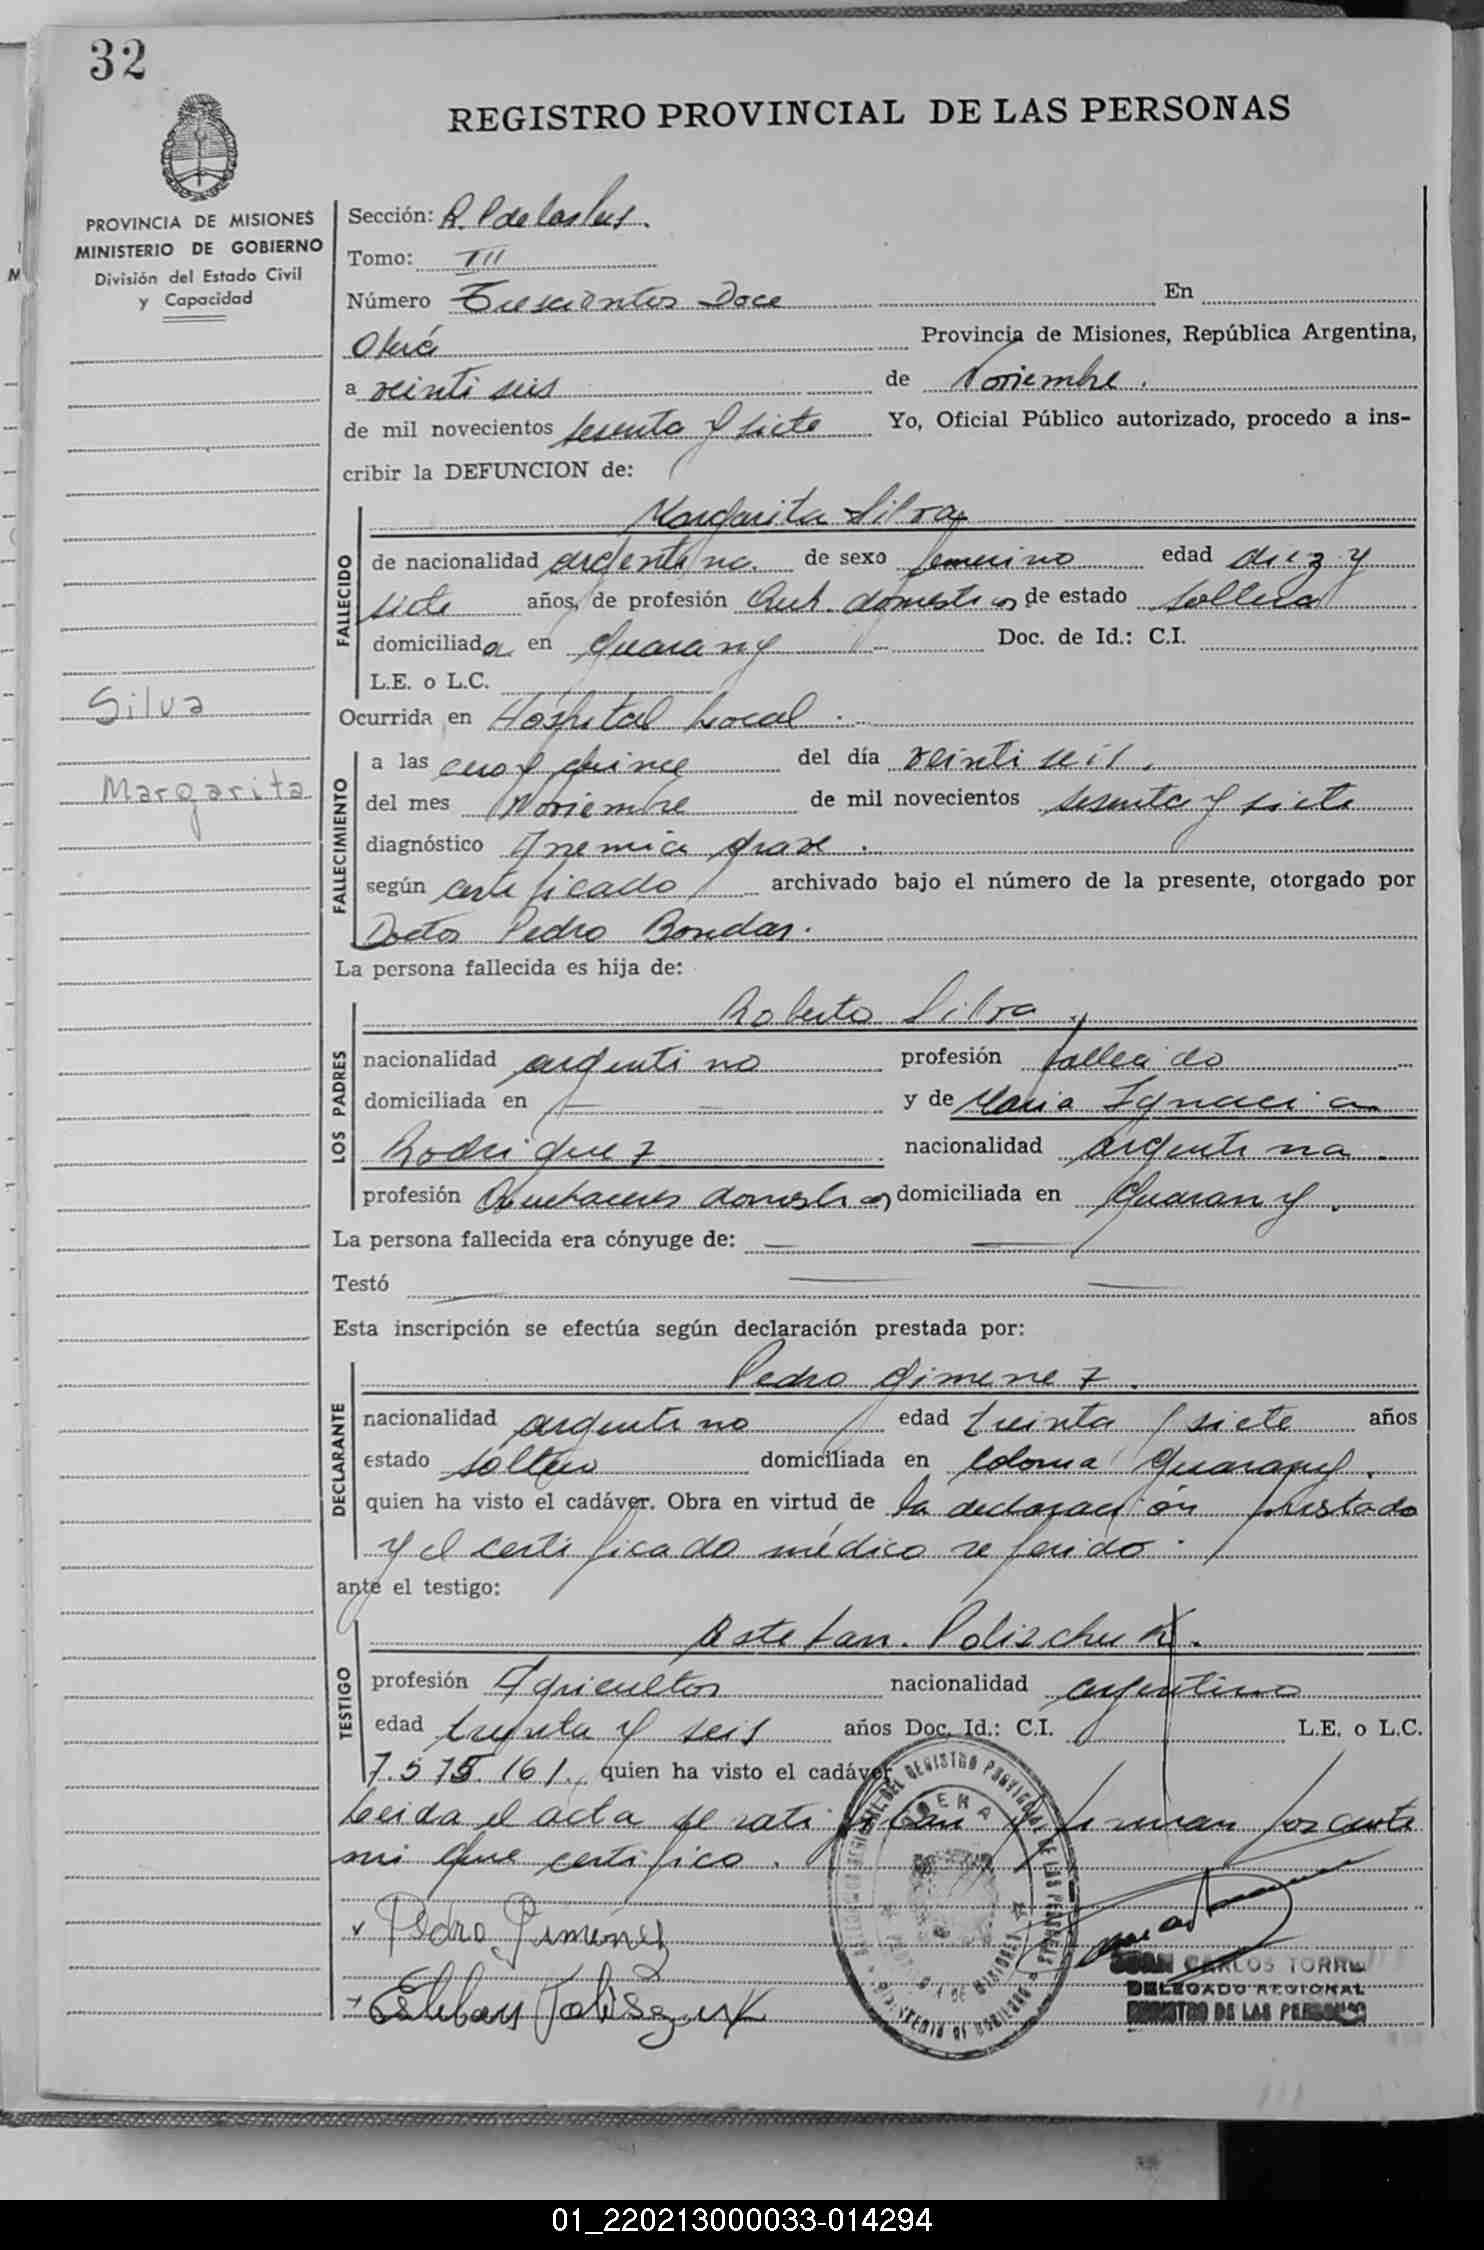 32
REGISTRO PROVINCIAL DE LAS PERSONAS
PROVINCIA DE MISIONES
MINISTERIO DE GOBIERNO
División del Estado Civil
y Capacidad
Sección: R. P de las Pers.
Tomo: III
Número Trescientos Doce En
Oberá Provincia de Misiones, República Argentina,
a veinti seis de Noviembre.
de mil novecientos sesenta y siete Yo, Oficial Público autorizado, procedo a ins-
cribir la DEFUNCION de:
FALLECIDO
Margarita Silva
de nacionalidad argentina. de sexo femenino edad diez y
siete años, de profesión Queh. domesticos de estado soltera
domiciliada en Guarany Doc. de Id.: C.I.
L.E. o L.C.
Silva
Margarita
Ocurrida en Hospital Local.
FALLECIMIENTO
a las cero y quince del día veinti seis.
del mes Noviembre de mil novecientos sesenta y siete
diagnóstico Anemia grave.
según certificado archivado bajo el número de la presente, otorgado por
Doctor Pedro Bondar.
La persona fallecida es hija de:
LOS PADRES
Roberto Silva
nacionalidad argentino profesión fallecido
domiciliada en — — y de Maria Ignacia
Rodriguez nacionalidad argentina.
profesión Quehaceres domesticos domiciliada en Guarany.
La persona fallecida era cónyuge de: — —
Testó — — —
Esta inscripción se efectúa según declaración prestada por:
DECLARANTE
Pedro Gimenez.
nacionalidad argentino edad treinta y siete años
estado soltero domiciliada en Colonia Guarany.
quien ha visto el cadáver. Obra en virtud de la declaración prestado
y el certificado médico referido.
ante el testigo:
TESTIGO
Esteban. Polischuk.
profesión Agricultor nacionalidad argentino
edad treinta y seis años Doc. Id.: C.I. L.E. o L.C.
7.575.161. quien ha visto el cadáver
Leida el acta se ratifican y firman por ante
mi que certifico.
Pedro Gimenez
Esteban
JUAN CARLOS TORRES
DELEGADO REGIONAL
REGISTRO DE LAS PERSONAS
01_220213000033-014294